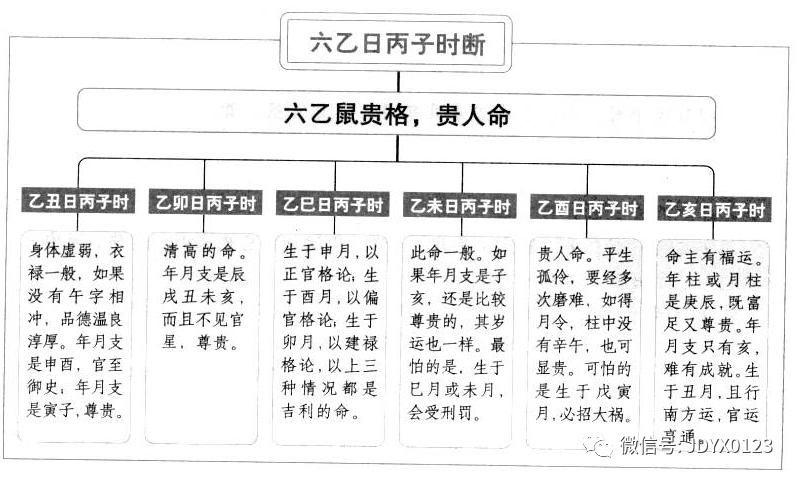 六乙日丙子时断
六乙鼠贵格，贵人命
乙丑日丙子时
身体虚弱，衣
禄一般，如果
没有午字相
冲，品德温良
淳厚。年月支
是申酉，官至
御史；年月支
是寅子，尊贵。
乙卯日丙子时
清高的命。
年月支是辰
戌丑未亥，
而且不见官
星，尊贵。
乙巳日丙子时
生于申月，以
正官格论；生
于酉月，以偏
官格论；生于
卯月，以建禄
格论，以上三
种情况都是
吉利的命。
乙未日丙子时
此命一般。如
果年月支是子
亥，还是比较
尊贵的，其岁
运也一样。最
怕的是，生于
巳月或未月，
会受刑罚。
乙酉日丙子时
贵人命。平生
孤伶，要经多
次磨难，如得
月令，柱中没
有辛午，也可
显贵。可怕的
是生于戊寅
月，必招大祸。
乙亥日丙子时
命主有福运。
年柱或月柱
是庚辰，既富
足又尊贵。年
月支只有亥，
难有成就。生
于丑月，且行
南方运，官运
亨通。
微信号: JDYX0123